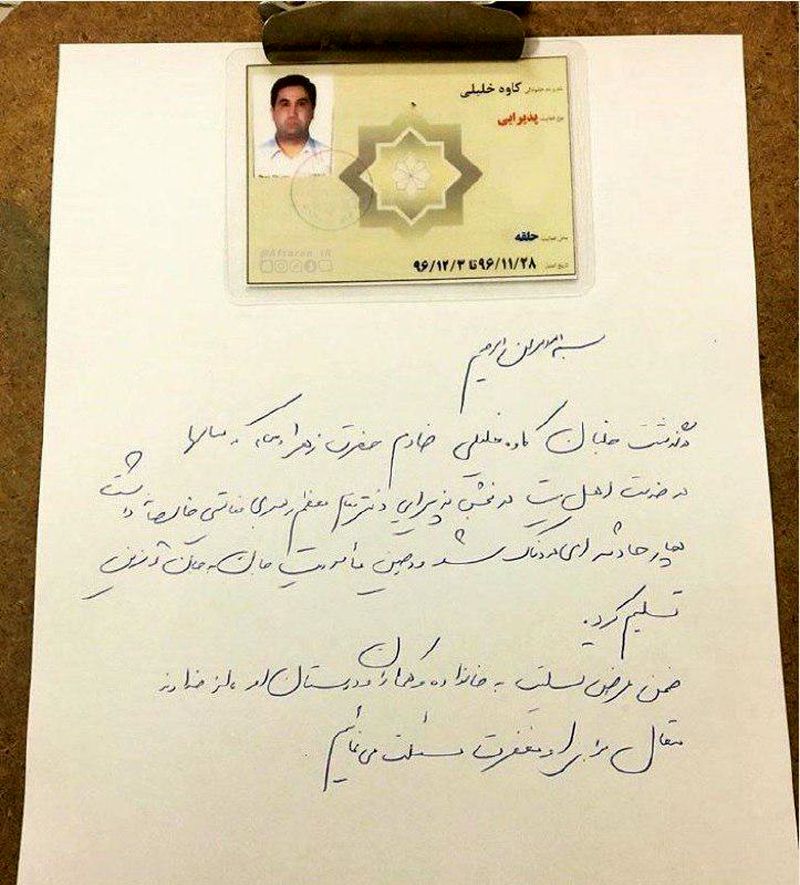 نام و نام خانوادگی کاوه خلیلی
نوع فعالیت پذیرایی
محل فعالیت حلقه
تاریخ اعتبار ۹۶/۱۱/۲۸ تا ۹۶/۱۲/۳
@Afsaran_IR
بسم الله الرحمن الرحیم
درگذشت کاوه خلیلی خادم حضرت زهرا که سالها
در خدمت اهل بیت در بخش پذیرایی دفتر مقام معظم رهبری داشت
دچار حادثه ای دردناک شد و در حین مأموریت جان به جان آفرین
تسلیم کرد.
ضمن عرض تسلیت به خانواده و همکاران و دوستان او از خداوند
متعال برای او مغفرت مسئلت می نمائیم